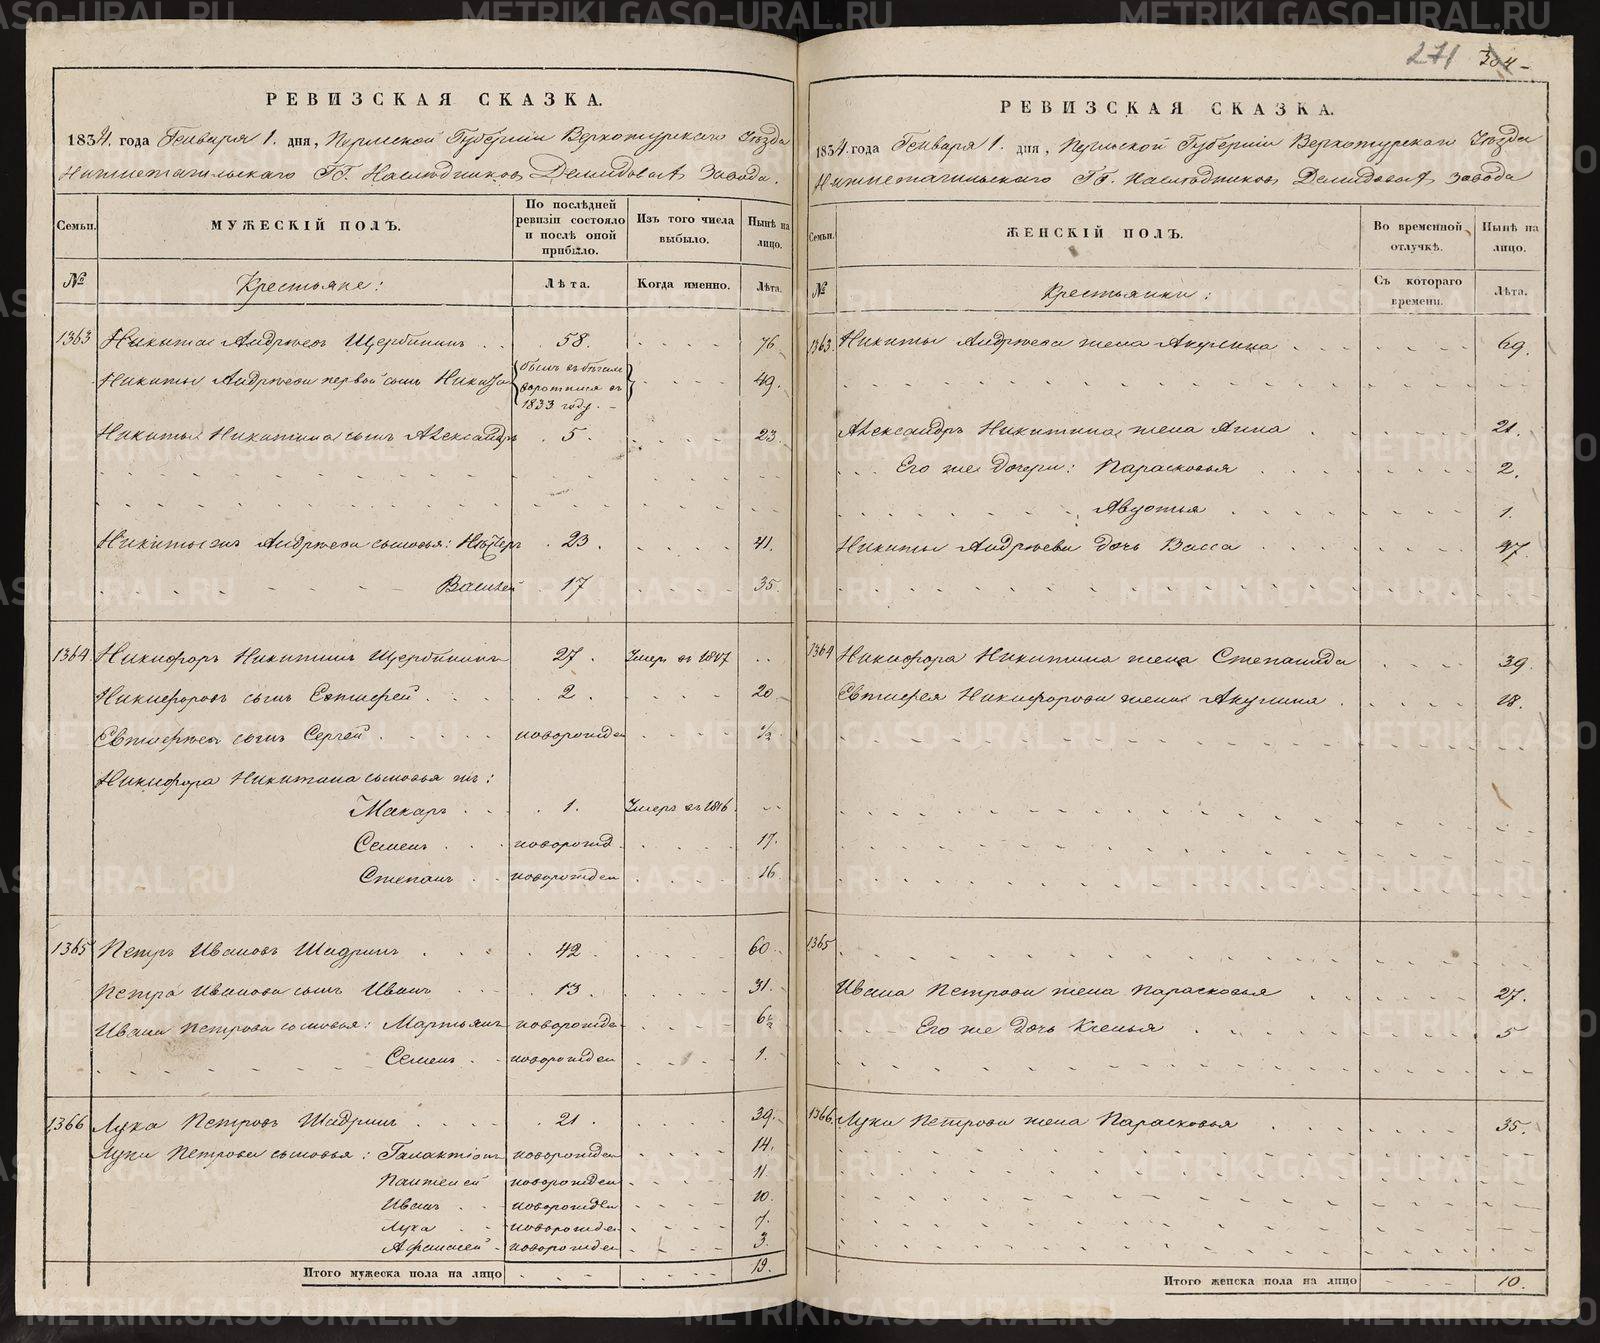 271 304
РЕВИЗСКАЯ СКАЗКА.
1834. года Генваря 1. дня, Пермской Губерніи Верхотурскаго Уѣзда
Нижнетагильскаго ГГ. Наслѣдниковъ Демидовыхъ завода.
Семьи. МУЖЕСКІЙ ПОЛЪ. По послѣдней ревизіи состояло и послѣ оной прибыло. Изъ того числа выбыло. Нынѣ на лицо.
№ Крестьяне: Лѣта. Когда именно. Лѣта.
1363 Никита Андрѣевъ Щербининъ . . 58. 76
Никиты Андрѣева первой сынъ Никита былъ въ бѣгахъ воротился въ 1833 году. 49.
Никиты Никитина сынъ Александръ 5. 23.
Никиты Андрѣева сыновья: 23. 41.
Василей 17 35.
1364 Никифоръ Никитинъ Щербининъ 27. Умеръ въ 1817
Никифоровъ сынъ Евтифей 2. 20
Евтифѣя сынъ Сергей новорожден 1/2
Никифора Никитина сыновья же:
Макаръ 1. Умеръ въ 1816.
Семенъ новорожд. 17.
Степанъ новорожден 16
1365 Петръ Ивановъ Шадринъ 42. 60
Петра Иванова сынъ Иванъ 13. 31.
Ивана Петрова сыновья: Мартьянъ новорожде 6 1/2
Семенъ новорожден 1.
1366 Лука Петровъ Шадринъ 21. 39.
Луки Петрова сыновья: Галактіонъ новорожден 14.
Пантелей новорожден 11.
Иванъ новорожден 10.
Лука новорожде 7.
Афанасей новорожден 3.
Итого мужеска пола на лицо 19.
РЕВИЗСКАЯ СКАЗКА.
1834. года Генваря 1. дня, Пермской Губерніи Верхотурскаго Уѣзда
Нижнетагильскаго ГГ. Наслѣдниковъ Демидовыхъ завода
Семьи. ЖЕНСКІЙ ПОЛЪ. Во временной отлучкѣ. Нынѣ на лицо.
№ Крестьянки: Съ котораго времени. Лѣта.
1363. Никиты Андрѣева жена Акулина 69.
Александръ Никитина жена Анна 21.
Его же дочери: Парасковья 2.
Авдотья 1.
Никиты Андрѣева дочь Васса 47.
1364 Никифора Никитина жена Степанида 39.
Евтифея Никифорова жена Акулина 18.
1365
Ивана Петрова жена Парасковья 27.
Его же дочь Ксенья 5
1366 Луки Петрова жена Парасковья 35.
Итого женска пола на лицо 10.
METRIKI.GASO-URAL.RU